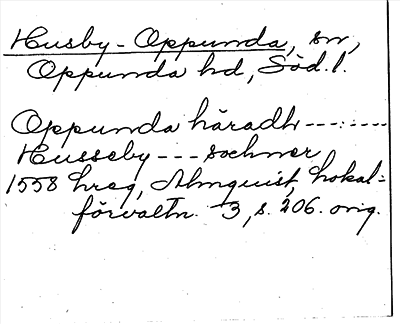 Husby-Oppunda, sn,
Oppunda hd, Söd. l.
Oppunda häradh ---:----
Husseby --- sochner
1558 hreg, Almquist, Lokal-
förvaltn. 3, s. 206. orig.